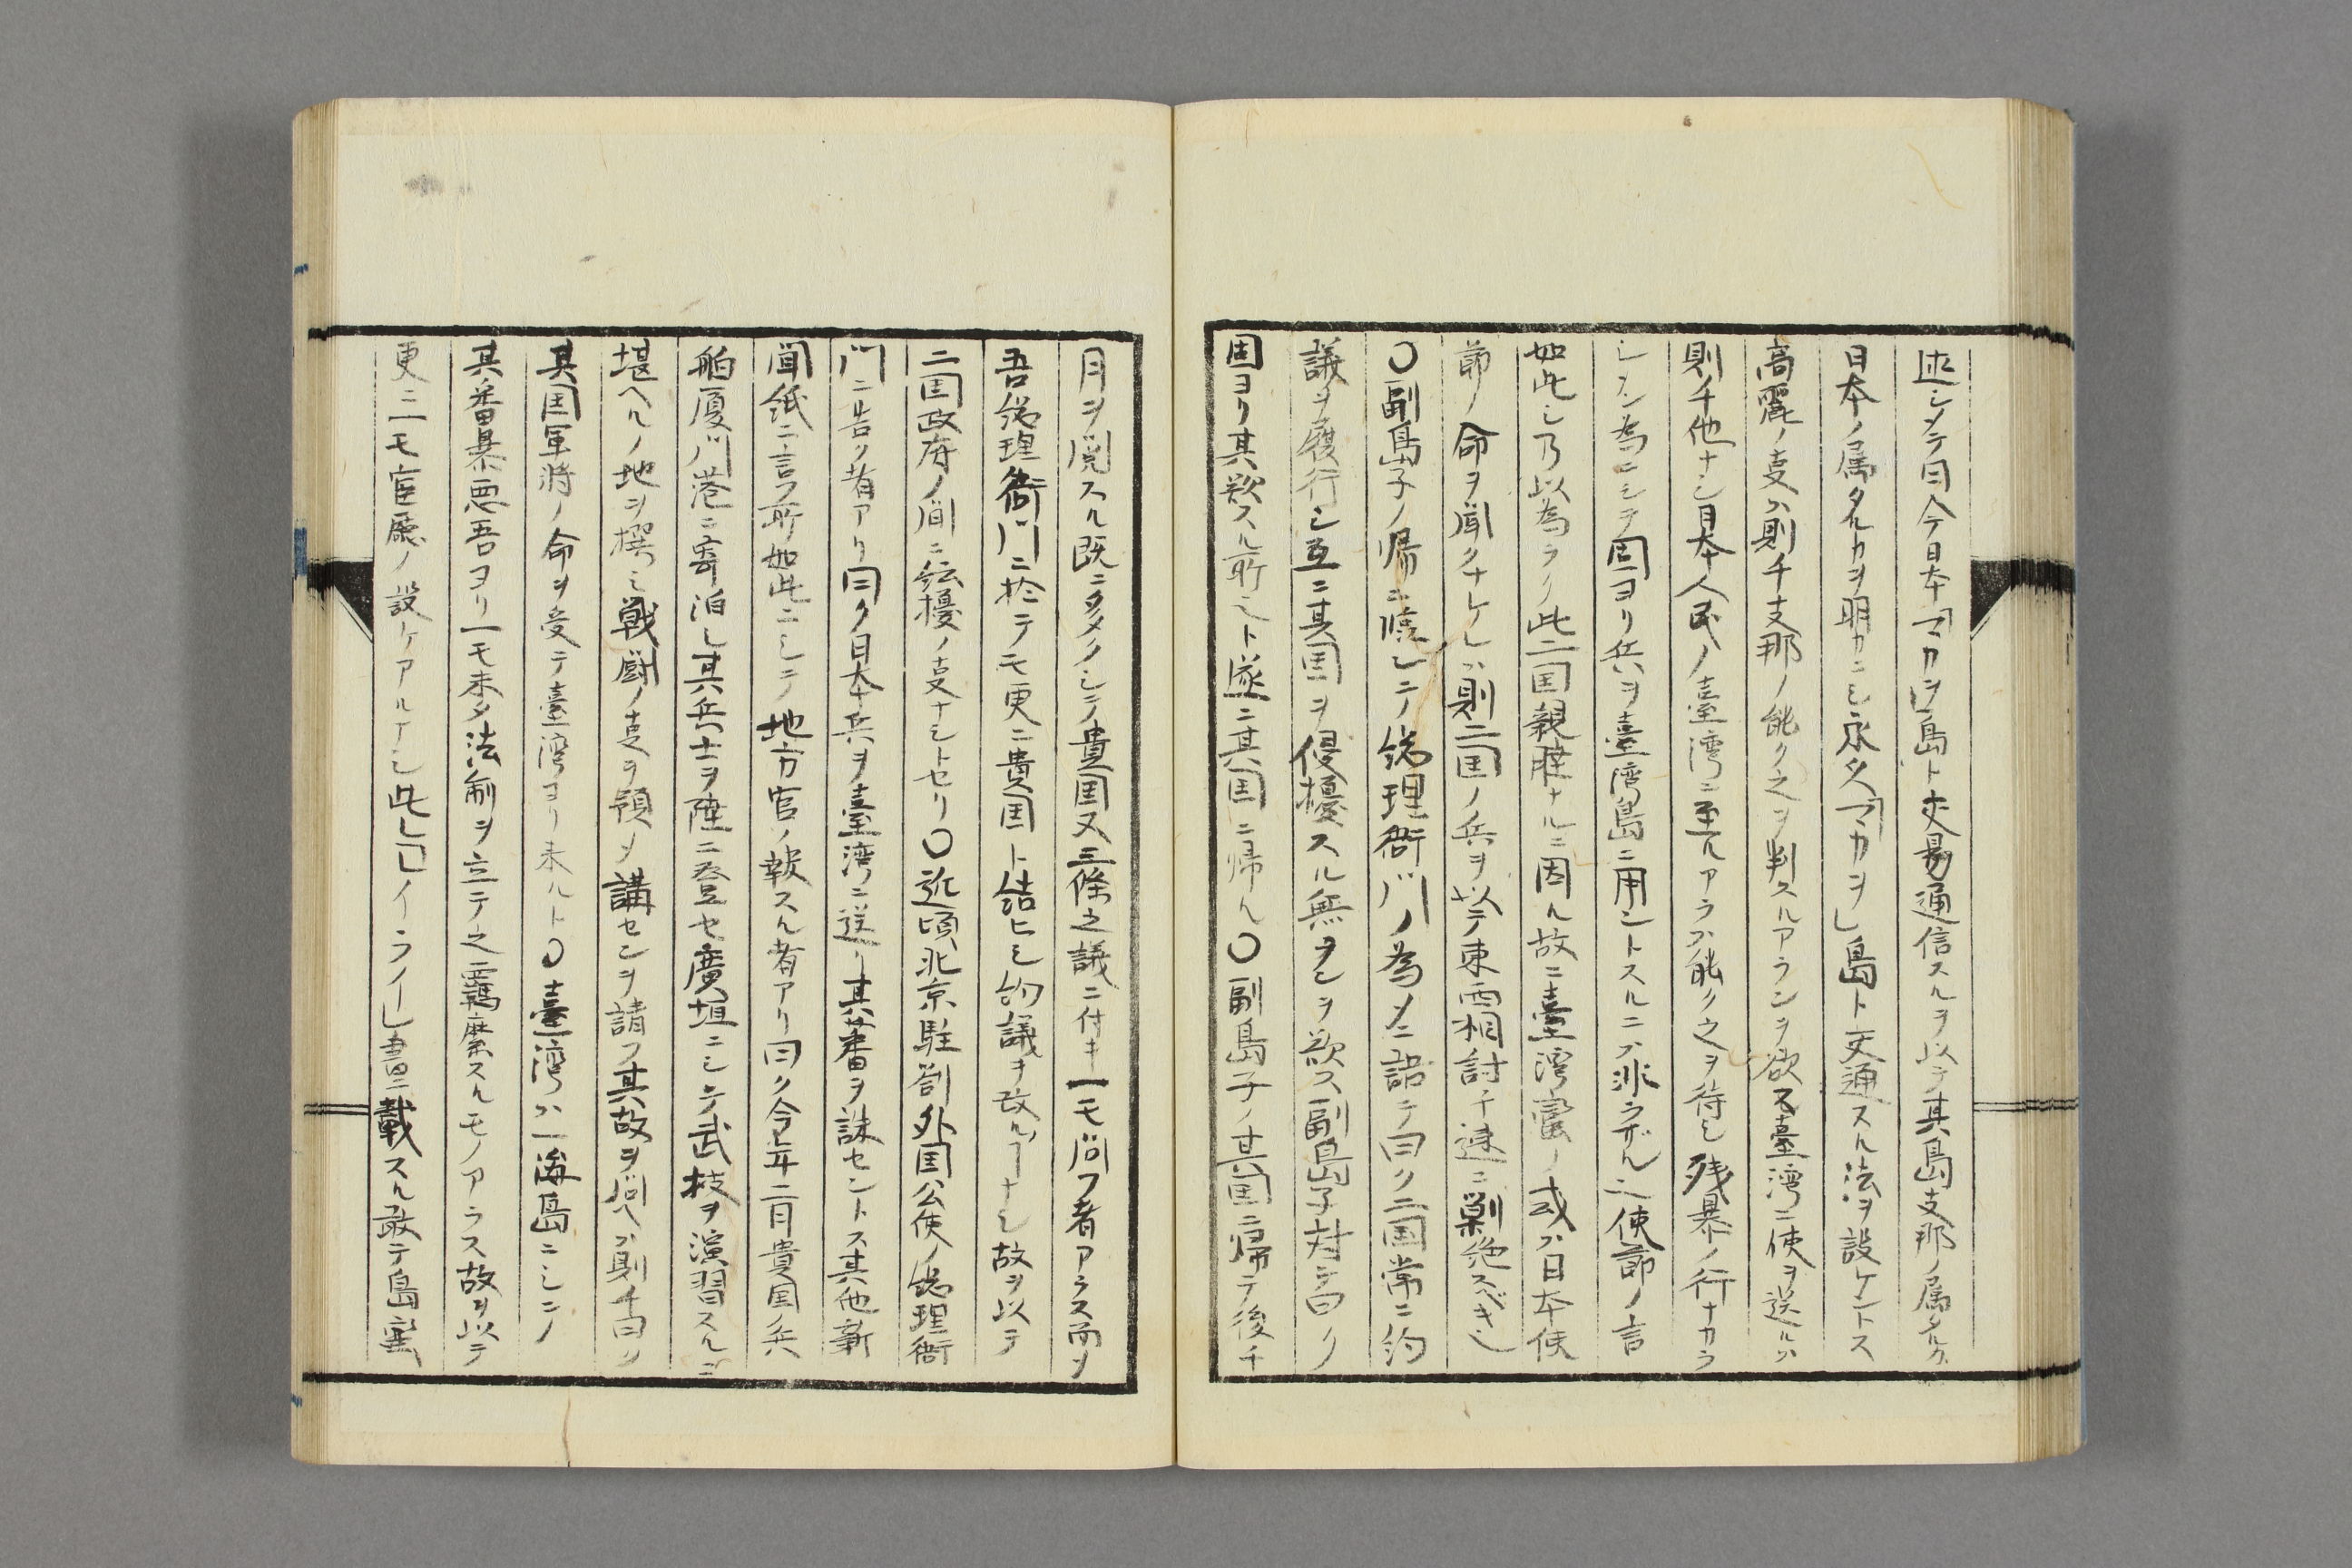 述シメテ曰今日本「マカヲ」島ト交易通信スルヲ以テ其島支那ノ属タルカ
日本ノ属タルカヲ明カニシ永久「マカヲ」島ト交通スル法ヲ設ケントス
高麗ノ叓ハ則チ支那ノ能ク之ヲ判スルアランヲ欲ス臺湾ニ使ヲ送ルハ
則チ他ナシ日本人民ノ臺湾ニ至ルアラハ能ク之ヲ待シ残暴ノ行ナカラ
シメン為ニシテ固ヨリ兵ヲ臺湾島ニ用ントスルニハ非ラザルニ使節ノ言
如此シ乃以為ラク此二国親睦ナルニ因ル故ニ臺湾蛮ノ或ハ日本使
節ノ命ヲ聞クナケレハ則二国ノ兵ヲ以テ東西相討チ速ニ剿絶スベキシ
〇副島子ノ帰ニ際シテ総理衙門ノ為メニ語テ曰ク二国常ニ約
議ヲ履行シ互ニ其国ヲ侵擾スル無ヲシヲ欲ス副島子対テ曰ク
固ヨリ其欲スル所シト遂ニ其国ニ帰ル〇副島子ノ其国ニ帰テ後チ
月ヲ閲スル既ニ多クシテ貴国又三條之議ニ付キ一モ問フ者アラス而ヲ
吾総理衙門ニ於テモ更ニ貴国ト結ヒシ約議ヲ改ルヿナシ故ヲ以テ
二国政府ノ間ニ紜擾ノ叓ナシトセリ〇近頃北京駐劄外国公使ノ総理衙
門ニ告ク者アリ曰ク日本兵ヲ臺湾ニ送リ其蕃ヲ誅セントス其他新
聞紙ニ言フ所如此ニシテ地方官ノ報スル者アリ曰ク今年二月貴国ノ兵
舶厦門港ニ寄泊シ其兵士ヲ陸ニ登セ廣垣ニシテ武技ヲ演習スルニ
堪ヘルノ地ヲ撰ミ戦闘ノ叓ヲ預メ講センヲ請フ其故ヲ問ヘハ則チ曰ク
其国軍将ノ命ヲ受テ臺湾ヨリ来ルト〇臺湾ハ一海島ニシテ
其番暴悪吾ヨリ一モ未タ法制ヲ立テ之ヲ羈縻スルモノアラス故ヲ以テ
更ニ一モ官廰ノ設ケアルナシ此レ「イライ」書ニ載スル敢テ島蛮